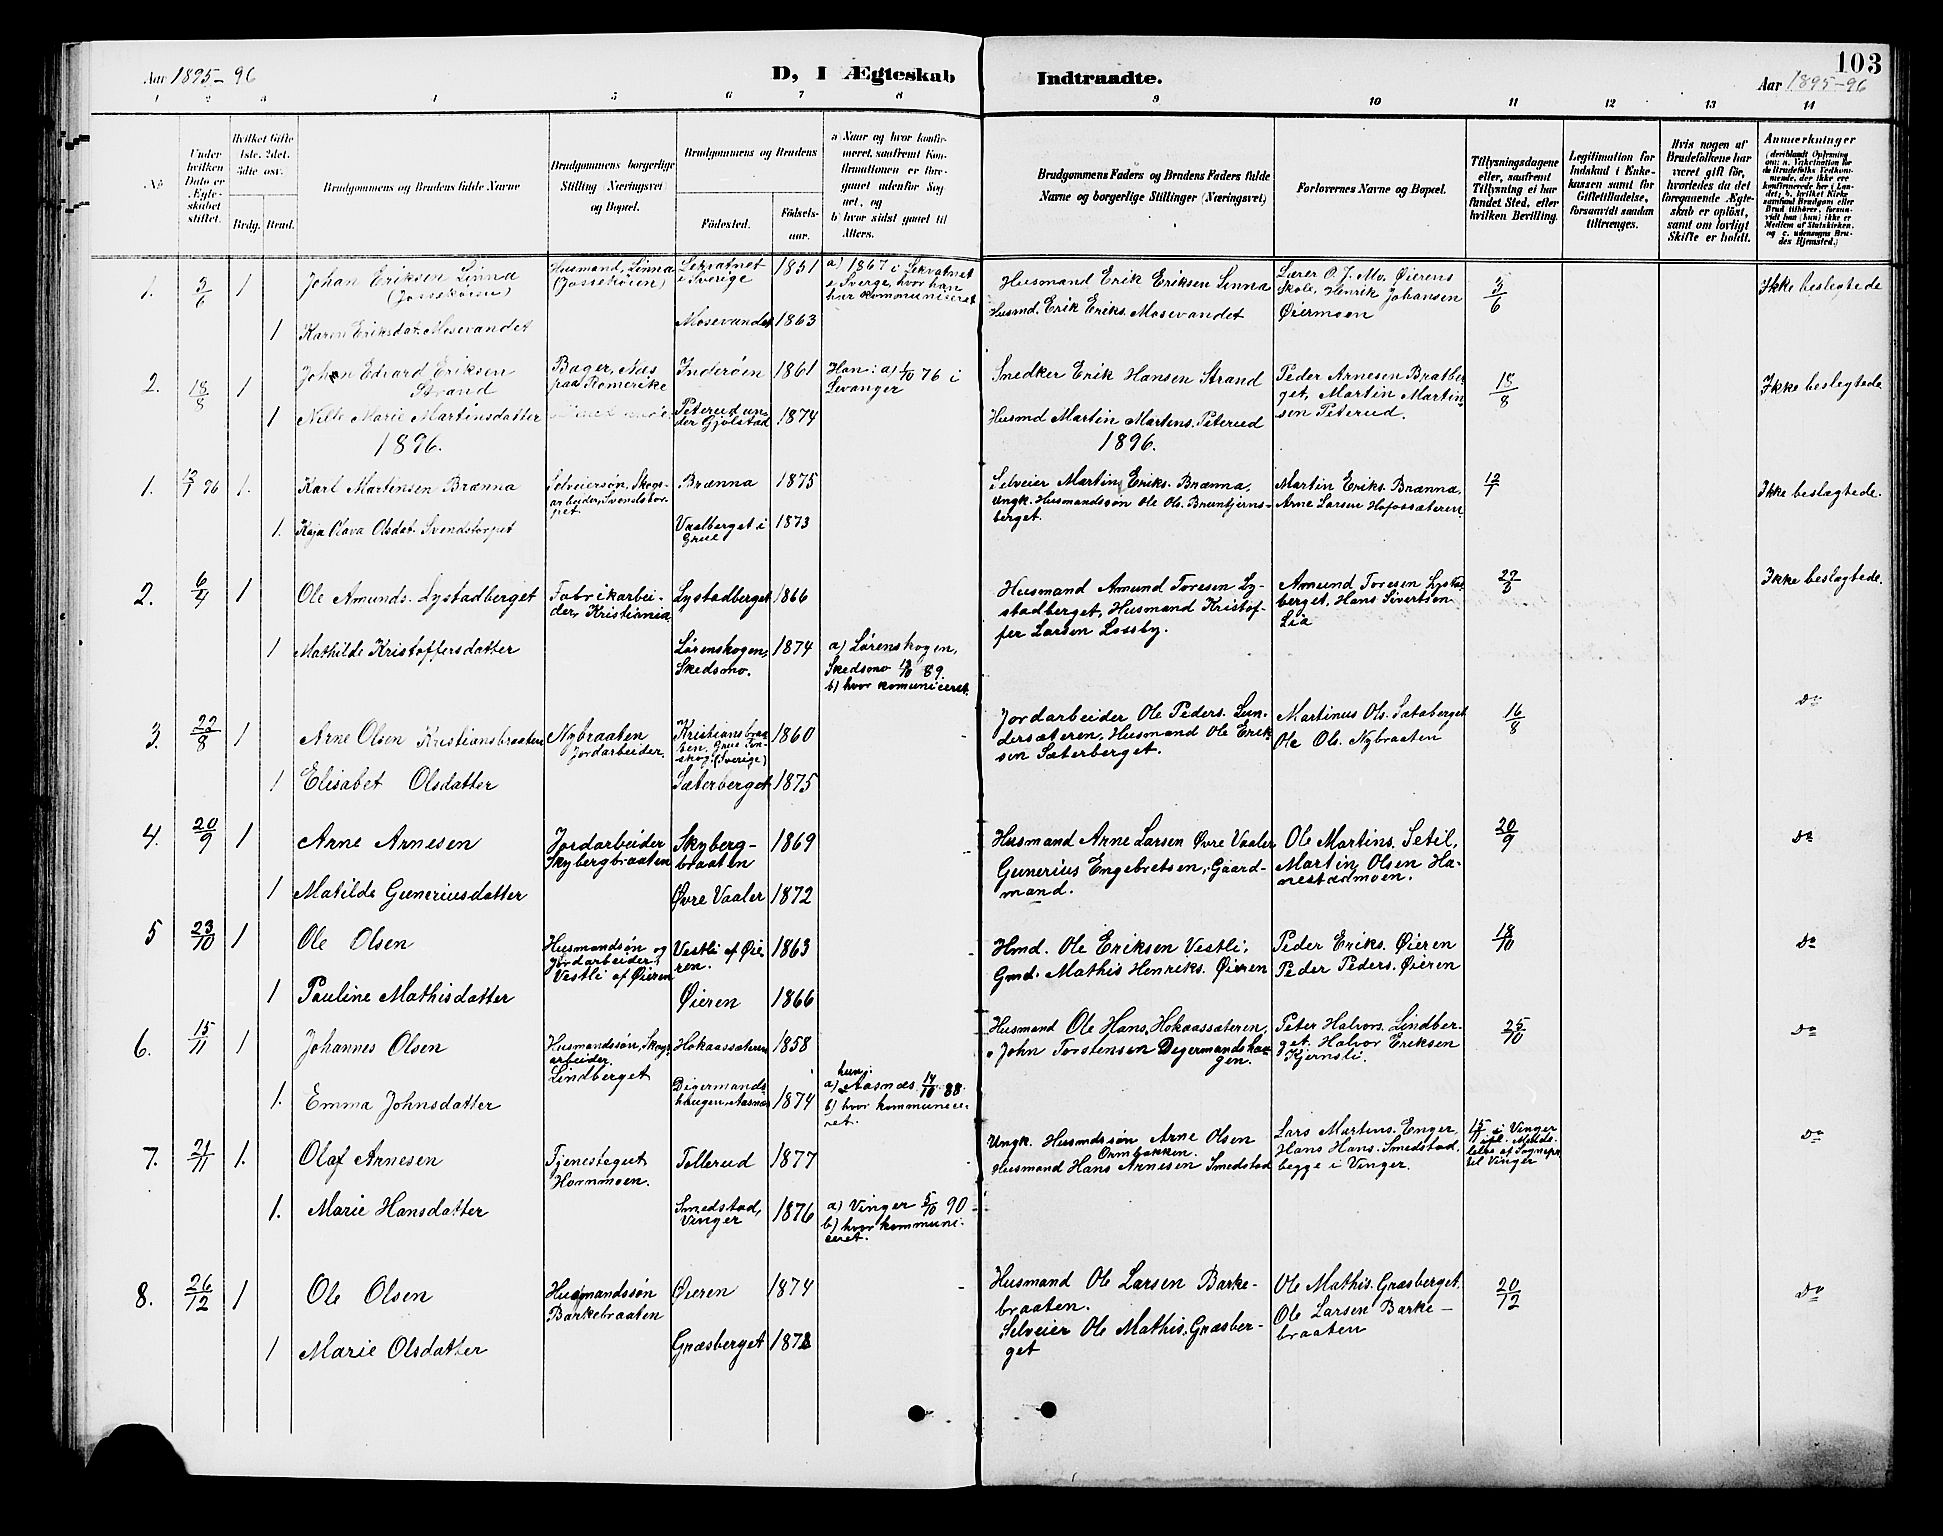 103
Aar 1895-96
D, I Ægteskab
Indtraadte.
Aar 1895-96
1 2 3 4 5 6 7 8 9 10 11 12 13 14
No
Under hvilken Dato er Ægteskabet stiftet.
Hvilket Gifte 1ste. 2det. 3die osv.
Brdg. Brud.
Brudgommens og Brudens fulde Navne
Brudgommens borgerlige Stilling (Næringsvei) og Bopæl.
Brudgommens og Brudens
Födested.
Födselsaar.
a) Naar og hvor konfirmeret, saafremt Konfirmationen er foregaaet udenfor Sognet, og
b) hvor sidst gaaet til Alters.
Brudgommens Faders og Brudens Faders fulde Navne og borgerlige Stillinger (Næringsvei)
Forlovernes Navne og Bopæl.
Tillysningsdagene eller, saafremt Tillysning ei har fundet Sted, efter hvilken Bevilling.
Legitimation for Indskud i Enkekassen samt for Giftetilladelse, forsaavidt saadan tiltrænges.
Hvis nogen af Brudefolkene har været gift för, hvorledes da det foregaaende Ægteskab er oplöst, samt om lovligt Skifte er holdt.
Anmerkninger
1. 3/6 1 Johan Eriksen Linna
(Jossekøien)
Husmand, Linna
(Jossekøien)
Lekvatnet
i Sverige
1851
a) 1867 i Lekvatnet
i Sverge, hvor han
har kommuniseret
Husmand Erik Eriksen Linna
Lærer O. J. Mv. Øierens
Skole, Henrik Johansen
Øiermoen
3/6
Ikke beslegtede
1 Karen Eriksdat. Mosevandet
Mosevandet 1863
Husmd. Erik Eriks. Mosevandet
2. 18/8 1 Johan Edvard Eriksen
Strand
Bager, Næs
paa Romerike
Inderøen 1861
Han: a) 1/10 76 i
Levanger
Snedker Erik Hansen Strand
Peder Arnesen Bratber
get, Martin Martin-
sen Peterud.
18/8
Ikke beslegtede
1 Nille Marie Martinsdatter
Peterud un-
der Gjølstad
1874
Husmd Martin Martens. Peterud
1896.
1896.
1. 12/1 96 1. Karl Martinsen Brænna
Selveiersøn, Skogs-
arbeider, Svenstor-
pet
Brænna 1875
Selveier Martin Eriks. Brænna,
Ungk. Husmandssøn Ole Ols. Bruntjerns-
berget.
Martin Eriks. Brænna,
Arne Larsen Hofossæteren
12/1
Ikke beslegtede.
1. Kaja Olava Olsdat. Svendstorpet
Vaalberget i
Grue
1873
2. 6/4 1 Ole Amunds. Lystadberget
Fabrikarbei-
der, Kristiania
Lystadberget 1866
Husmand Amund Toresen Ly-
stadberget, Husmand Kristof-
fer Larsen Lossby.
Amund Toresen Lystad
berget, Hans Sivertsen
Lia
29/3
Ikke beslegtede.
1 Mathilde Kristoffersdatter
Lørenskogen,
Skedsmo.
1874
a) Lørenskogen,
Skedsmo 89.
b) hvor komuniceret.
3. 22/8 1 Arne Olsen Kristiansbraaten
Nybraaten
Jordarbeider.
Kristiansbraa
ten, Grue Fin-
skog. (Sverige)
1860
Jordarbeider Ole Peders. Lun-
dersæteren, Husmand Ole Erik-
sen Sæterberget.
Martinus Ols. Sætaberget
Ole Ols. Nybraaten
16/8
Do
1 Elisabet Olsdatter
Sæterberget 1875
4. 20/9 1 Arne Arnesen
Jordarbeider
Skybergbraaten
Skyberg-
braaten
1869
Husmand Arne Larsen Øvre Vaaler
Gunerius Engebretsen, Gaard-
mand.
Ole Martins. Setil,
Martin Olsen Ha-
nestadmoen.
20/9
Do
1 Matilde Gunneriusdatter
Øvre Vaaler 1872
5 23/10 1 Ole Olsen
Husmandsøn og
Jordarbeider,
Vestli af Øieren
Vestli af Øie
ren.
1863
Hmd. Ole Eriksen Vestli,
Gmd. Mathis Henriks. Øieren
Peder Eriks. Øieren
Peder Peders. Øieren
18/10
Do
1 Pauline Mathisdatter
Øieren 1866
6. 15/11 1 Johannes Olsen
Husmandsøn, Skog-
arbeider
Lindberget
Hokaassæteren 1858
Husmand Ole Hans. Hokaassæteren,
" John Torstensen Degermandshau-
gen.
Peter Halvors. Lindber-
get, Halvor Eriksen
Kjernsli.
25/10
Do
1. Emma Johnsdatter
Digermands
haugen Aasnæs
1874
hun:
a) Aasnæs 14/10 88.
b) hvor kommunice-
ret.
7. 21/11 1. Olaf Arnesen
Tjenestegut
Hornmoen.
Tollerud 1877
Ungk. Husmdssøn Arne Olsen
Ormbakken.
Husmand Hans Arnesen Smedstad
Lars Martens. Enger,
Hans Hans. Smedstad,
begge i Vinger.
15/11 i Vinger
ifl. Medde-
lelse af Sognepr.
til Vinger
Do
1. Marie Hansdatter
Smedstad,
Vinger
1876
a) Vinger 5/10 90
b) hvor kommuni-
ceret.
8. 26/12 1 Ole Olsen
Husmandssøn
Barkebraaten
Øieren 1874
Husmand Ole Larsen Barke-
braaten.
Selveier Ole Mathis. Græsber-
get
Ole Mathis. Græsberget.
Ole Larsen Barke-
braaten
20/12
Do
1 Marie Olsdatter
Græsberget 1872